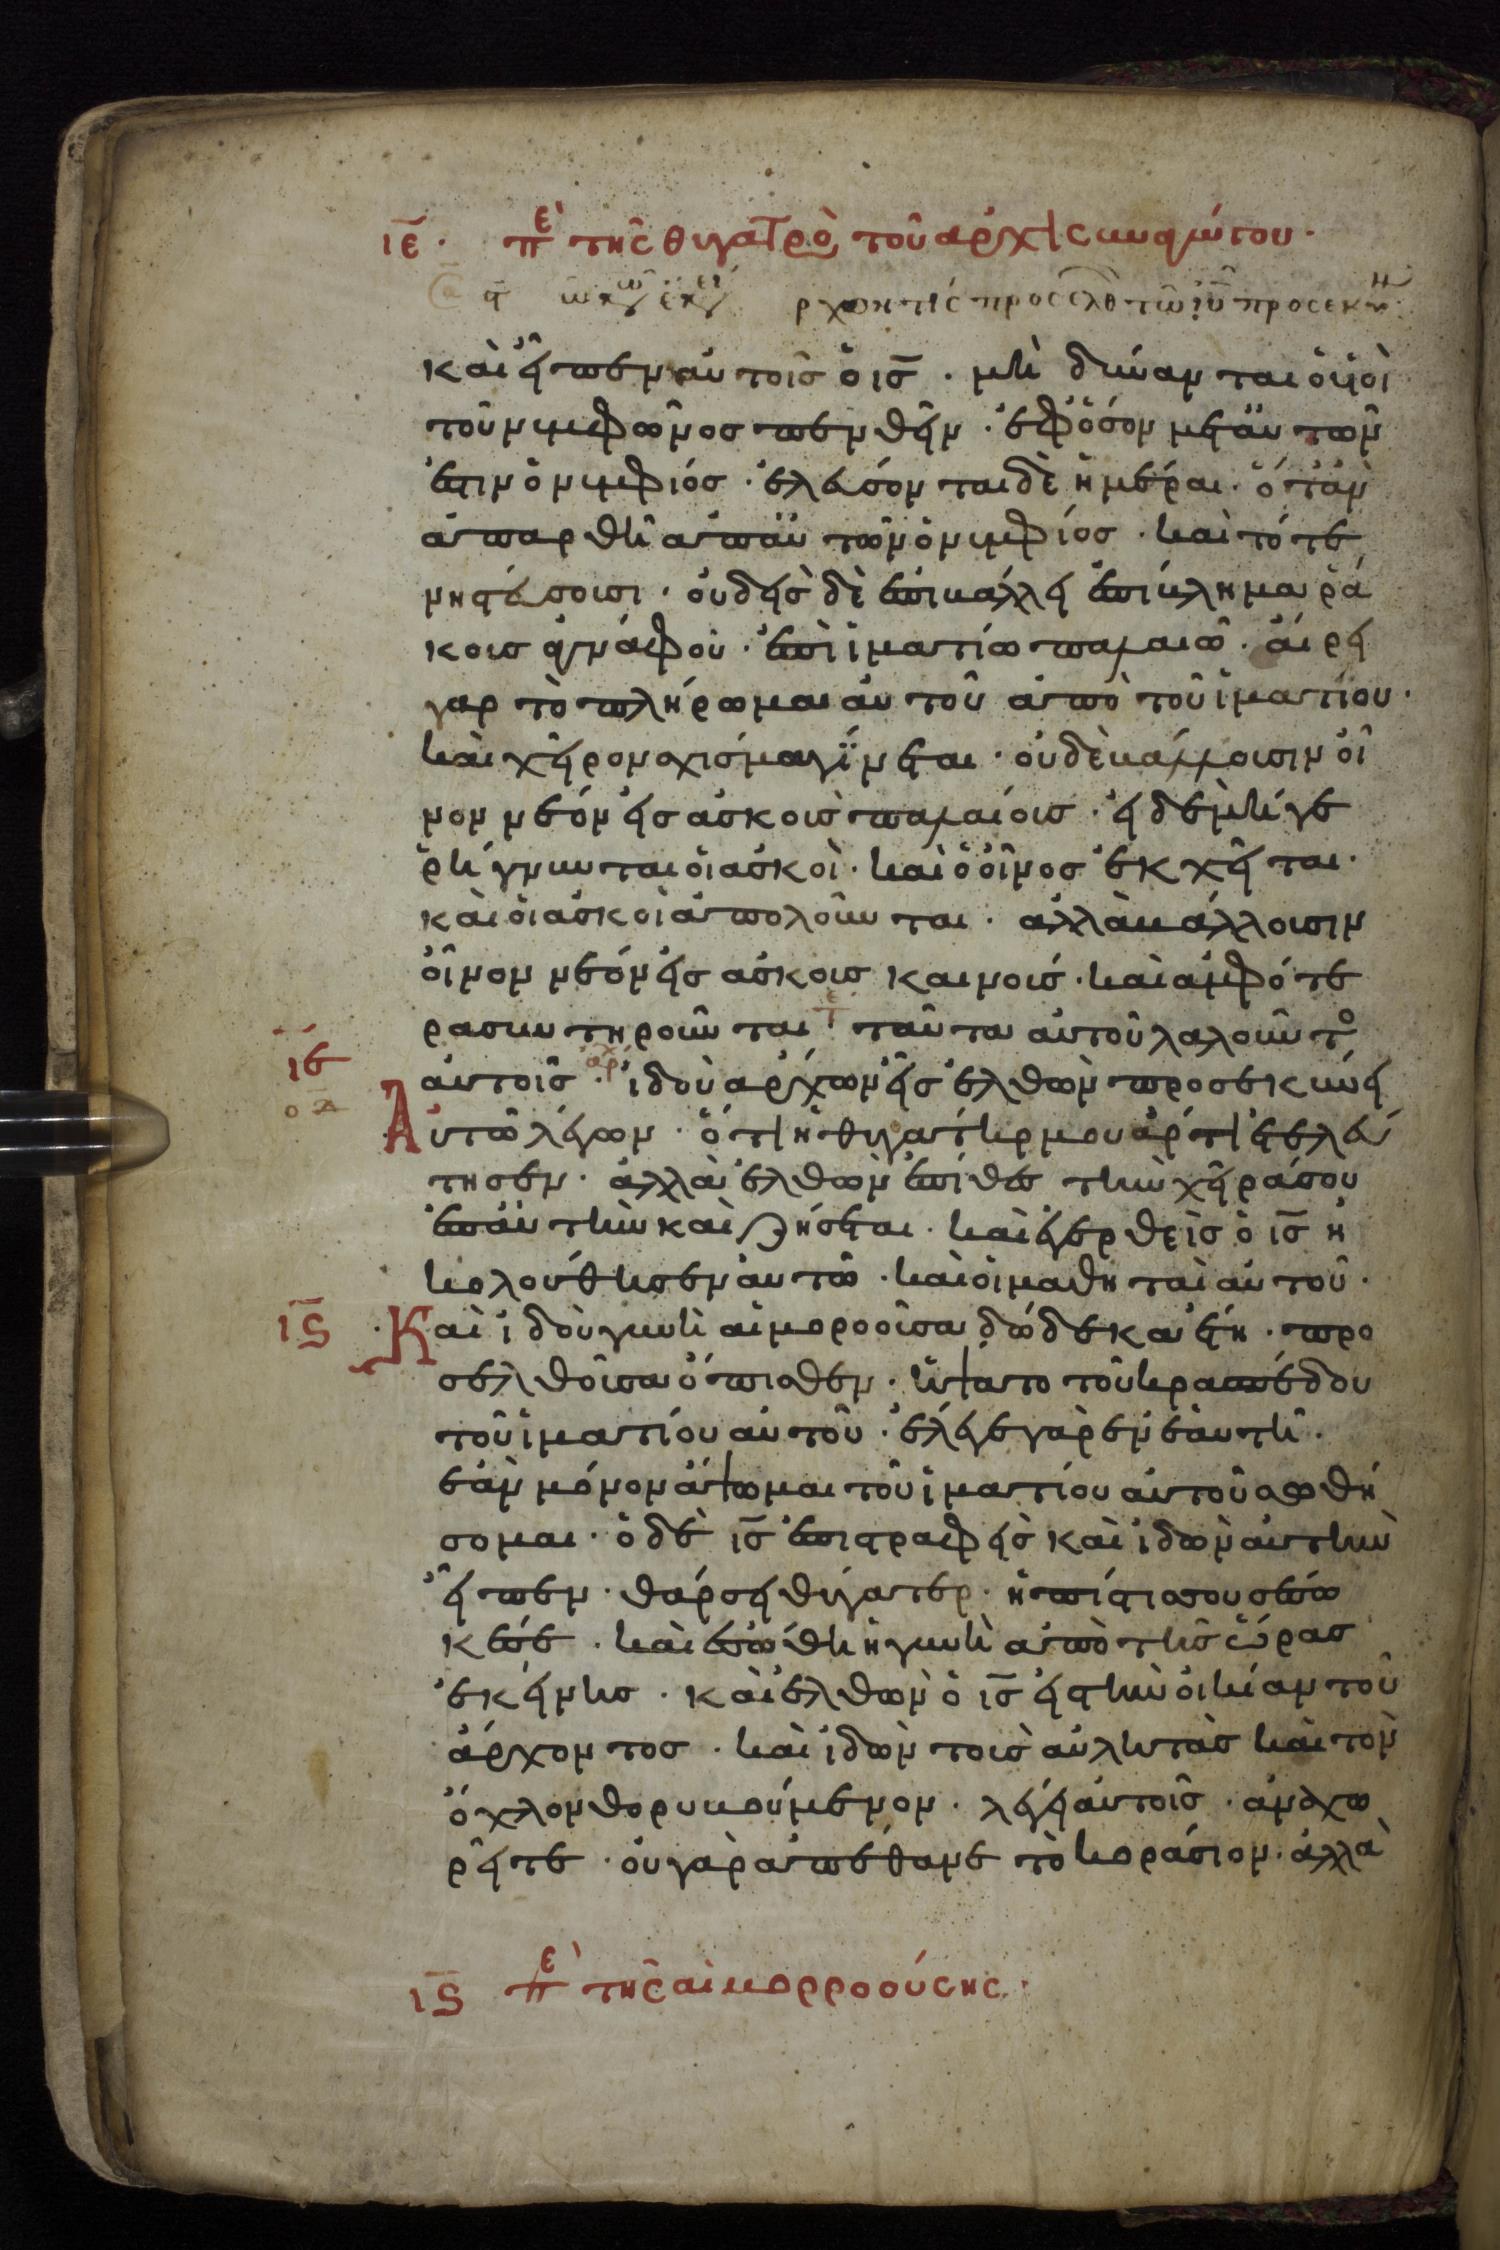 ιε · πε τῆς θυγατρὸ τοῦ ἀρχισυναγώτου ·
ρχων τίς προσελθ τῶ ιῦ προσεκύνη
καὶ εἶπεν αὐτοῖς ὁ ις · μὴ δύναν ται οἱ υἱοὶ
τοῦ νυμφῶνος πενθεῖν · ἐφ ὅσον μετ αὐτῶν
ἐστιν ὁ νυμφίος · ἐλεύσον ται δὲ ἡμέραι · ὅταν
ἀπαρθῆ ἀπ αὐτῶν ὁ νυμφίος · καὶ τότε
νηστεύσουσι · οὐδεὶς δὲ ἐπικάλλει ἐπίκλημα ρά
κους ἀγνάφου · ἐπὶ ἱματίω παλαιῶ · αἴρει
γαρ τὸ πλήρωμα αὐτοῦ ἀπὸ τοῦ ἱματίου ·
καὶ χεῖρον σχίσμα γίνεται · οὐδὲ κάλλουσιν οἶ
νον νέον εἰς ἀσκοὺς παλαιούς · εἰ δε μήγε
ῥήγνυνται οἱ ἀσκοὶ · καὶ ὁ οἶνος ἐκχεῖται ·
καὶ οἱ ἀσκοὶ ἀπολοῦνται · ἀλλὰ κάλλουσιν
οἶνον νέον εἰς ἀσκοὺς καινούς · καὶ ἀμφότε
ρα συντηροῦνται · ταῦτα αὐτοῦ λαλοῦντο
ιε αὐτοῖς · ἰδοὺ ἄρχων εἷς ἐλθὼν προσεκύνει
οδ Αὐτῶ λέγων · ὅτι ἡ θυγάτηρ μου ἄρτι ἐτελεύ
τησεν · ἀλλὰ ἐλθὼν ἐπίθες τὴν χεῖρά σου
ἐπ αὐτὴν καὶ ζήσεται · καὶ ἐγερθεὶς ὁ ις ἠ
κολούθησεν αὐτῶ · καὶ οἱ μαθηταὶ αὐτοῦ ·
ις · Καὶ ἰδοὺ γυνὴ αἱμοροοῦσα δώδεκα ἔτη · προ
σελθοῦσα ὄπισθεν · ἥψατο τοῦ κρασπέδου
τοῦ ἱματίου αὐτοῦ · ἔλεγε γὰρ ἐν ἑαυτῆ ·
ἐὰν μόνον ἅψωμαι τοῦ ἱματίου αὐτοῦ σωθή
σομαι · ὁ δὲ ις ἐπιστραφεὶς καὶ ἰδὼν αὐτὴν
εἶπεν · θάρσει θύγατερ · ἡ πίστις σου σέσω
κέ σε · καὶ ἐσώθη ἡ γυνὴ ἀπὸ τῆς ὥρας
ἐκείνης · καὶ ἐλθὼν ὁ ις εἰς τὴν οἰκίαν τοῦ
ἄρχοντος · καὶ ἰδὼν τοὺς αὐλητὰς καὶ τὸν
ὄχλον θορυβούμενον · λέγει αὐτοῖς · ἀναχω
ρεῖτε · οὐ γὰρ ἀπέθανε τὸ κοράσιον · ἀλλὰ
ις πε τῆς αἱμορροούσης ·